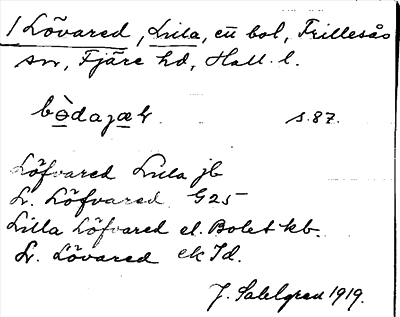 / Lövared, Lilla, ett bol, Frillesås
sn, Fjäre hd, Hall. l.
s. 87.
Löfvared Lilla jb
L. Löfvared G25
Lilla Löfvared el. Bolet kb.
L. Lövared ek Id.
J. Sahlgren 1919.